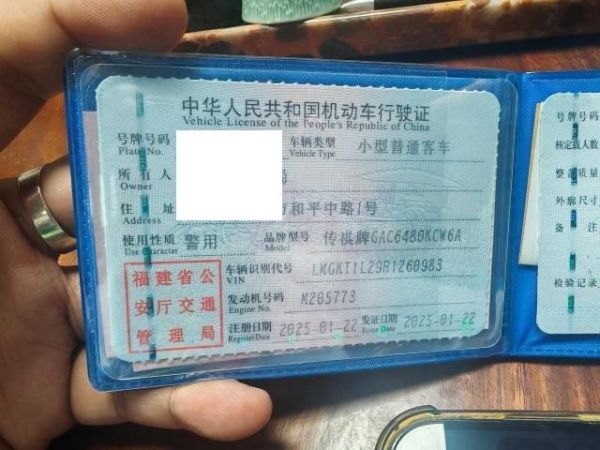 中华人民共和国机动车行驶证
Vehicle License of the People's Republic of China
号牌号码 车辆类型 小型普通客车
Plate No. Vehicle Type
所有人 局
Owner
住址 市和平中路1号
Address
使用性质 警用 品牌型号 传祺牌GAC6480KCW6A
Use Character Model
福建省公
安厅交通
管理局
车辆识别代号 LMGKT1L29R1260983
VIN
发动机号码 K205773
Engine No.
注册日期 2025-01-22 发证日期 2025-01-22
Register Date Issue Date
号牌号码
核定载人数
整备质量
外廓尺寸
备注
检验记录